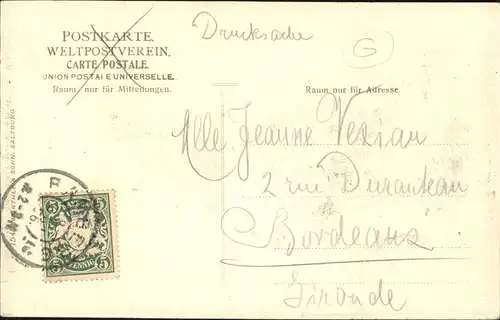 POSTKARTE.
WELTPOSTVEREIN.
CARTE POSTALE.
UNION POSTALE UNIVERSELLE.
Raum nur für Mitteilungen.
Drucksache
G
Raum nur für Adresse.
Mlle Jeanne Vezian
2 rue Duranteau
Bordeaux
Gironde
SOHN, SALZBURG
5 5
5 PFENNIG 5